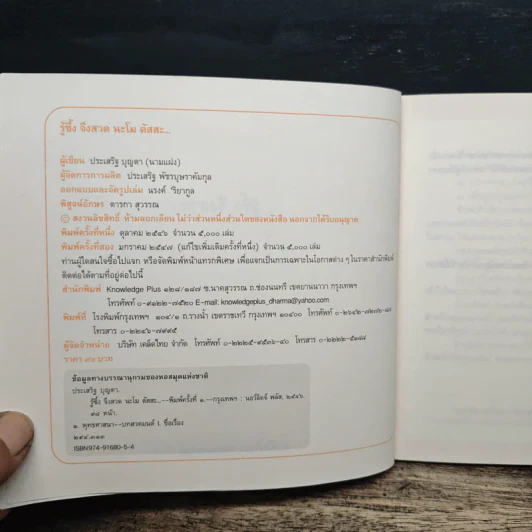 รู้ซึ้ง จึงสวด นะโม ตัสสะ...
ผู้เขียน ประเสริฐ บุญตา (นามแฝง)
ผู้จัดการการผลิต ประเสริฐ พัชรบุษราคัมกุล
ออกแบบและจัดรูปเล่ม นรงค์ วิยากูล
พิสูจน์อักษร ดารกา สุวรรณ
© สงวนลิขสิทธิ์ ห้ามลอกเลียน ไม่ว่าส่วนหนึ่งส่วนใดของหนังสือ นอกจากได้รับอนุญาต
พิมพ์ครั้งที่หนึ่ง ตุลาคม ๒๕๔๖ จำนวน ๕,๐๐๐ เล่ม
พิมพ์ครั้งที่สอง มกราคม ๒๕๔๗ (แก้ไขเพิ่มเติมครั้งที่หนึ่ง) จำนวน ๕,๐๐๐ เล่ม
ท่านผู้ใดสนใจซื้อไปแจก หรือจัดพิมพ์หน้าแทรกพิเศษ เพื่อแจกเป็นการเฉพาะในโอกาสต่าง ๆ ในราคาสำนักพิมพ์
ติดต่อได้ตามที่อยู่ต่อไปนี้
สำนักพิมพ์ Knowledge Plus ๑๒๘/๑๘๗ ซ.นาคสุวรรณ ถ.ช่องนนทรี เขตยานนาวา กรุงเทพฯ
โทรศัพท์ ๐-๙๑๒๒-๗๕๒๐ E-mail: knowledgeplus_dharma@yahoo.com
พิมพ์ที่ โรงพิมพ์กรุงเทพฯ ๑๐๙/๑ ถ.รางน้ำ เขตราชเทวี กรุงเทพฯ ๑๐๔๐๐ โทรศัพท์
โทรสาร ๐-๒๒๔๖-๗๙๙๕
ผู้จัดจำหน่าย บริษัท เคล็ดไทย จำกัด โทรศัพท์ ๐-๒๒๒๕-๙๕๓๖-๔๐ โทรสาร ๐-๒๒๒๒-๕๑๘๘
ราคา บาท
ข้อมูลทางบรรณานุกรมของหอสมุดแห่งชาติ
ประเสริฐ บุญตา.
รู้ซึ้ง จึงสวด นะโม ตัสสะ...--พิมพ์ครั้งที่ ๑.--กรุงเทพฯ : นอร์ลิดจ์ พลัส, ๒๕๔๖.
๙๘ หน้า.
๑. พุทธศาสนา--บทสวดมนต์ I. ชื่อเรื่อง
๒๙๔.๓๑๓
ISBN974-91680-5-4